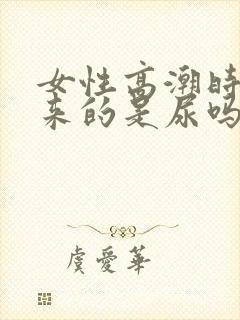 女性高潮时
来的是尿吗
虞爱华